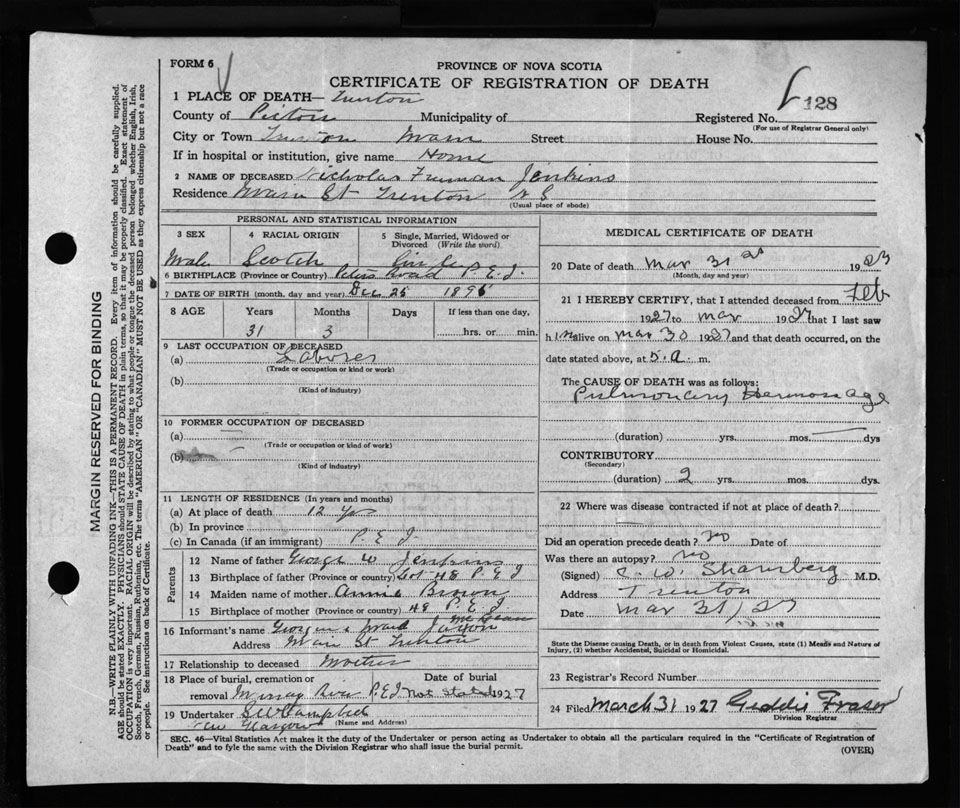 FORM 6
PROVINCE OF NOVA SCOTIA
CERTIFICATE OF REGISTRATION OF DEATH
128
1 PLACE OF DEATH— Trenton
County of Pictou Municipality of Registered No.
(For use of Registrar General only)
City or Town Trenton Main Street House No.
If in hospital or institution, give name Home
2 NAME OF DECEASED Nicholas Freeman Jenkins
Residence Main St Trenton N S
(Usual place of abode)
PERSONAL AND STATISTICAL INFORMATION
3 SEX 4 RACIAL ORIGIN 5 Single, Married, Widowed or Divorced (Write the word)
Male Scotch Single
6 BIRTHPLACE (Province or Country) Peters Road P. E. I.
7 DATE OF BIRTH (month, day and year) Dec 25 1895
8 AGE Years Months Days If less than one day,
31 3 hrs. or min.
9 LAST OCCUPATION OF DECEASED
(a) Laborer
(Trade or occupation or kind or work)
(b)
(Kind of industry)
10 FORMER OCCUPATION OF DECEASED
(a)
(Trade or occupation or kind of work)
(b)
(Kind of industry)
11 LENGTH OF RESIDENCE (In years and months)
(a) At place of death 12 yrs
(b) In province
(c) In Canada (if an immigrant) P. E. I
Parents
12 Name of father George W Jenkins
13 Birthplace of father (Province or country) Lot 48 P E I
14 Maiden name of mother Annie Brown
15 Birthplace of mother (Province or country) 48 P. E. I.
16 Informant's name
Address Main St Trenton
17 Relationship to deceased Mother
18 Place of burial, cremation or removal Murray River P.E.I Date of burial Not Stated 1927
19 Undertaker S W Campbell
New Glasgow (Name and Address)
MEDICAL CERTIFICATE OF DEATH
20 Date of death Mar 31 st 19
(Month, day and year)
21 I HEREBY CERTIFY, that I attended deceased from Feb
1927 to Mar 1927 that I last saw
him alive on Mar 30 1927 and that death occurred, on the
date stated above, at 5. a. m.
The CAUSE OF DEATH was as follows:
Pulmonary Hermorrage
(duration) yrs. mos. — dys
CONTRIBUTORY
(Secondary)
(duration) 2 yrs. mos. dys
22 Where was disease contracted if not at place of death?
Did an operation precede death? no Date of
Was there an autopsy? no
(Signed) C. W. Shamberg M.D.
Address Trenton
Date Mar 31/27
State the Disease causing Death, or in death from Violent Causes, state (1) Means and Nature of Injury, (2) whether Accidental, Suicidal or Homicidal.
23 Registrar's Record Number
24 Filed March 31 1927 Geddie Fraser
Division Registrar
SEC. 46—Vital Statistics Act makes it the duty of the Undertaker or person acting as Undertaker to obtain all the particulars required in the "Certificate of Registration of
Death" and to fyle the same with the Division Registrar who shall issue the burial permit.
(OVER)
MARGIN RESERVED FOR BINDING
N.B.—WRITE PLAINLY WITH UNFADING INK—THIS IS A PERMANENT RECORD. Every item of information should be carefully supplied.
AGE should be stated EXACTLY. PHYSICIANS should STATE CAUSE OF DEATH in plain terms, so that it may be properly classified. Exact statement of
OCCUPATION is very important. RACIAL ORIGIN will be described by stating to what people or tongue the deceased person belonged whether English, Irish,
Scotch, French, German, Russian, Ruthenian, etc. The terms "AMERICAN" OR "CANADIAN" MUST NOT BE USED as they express citizenship but not a race
or people. See instructions on back of Certificate.